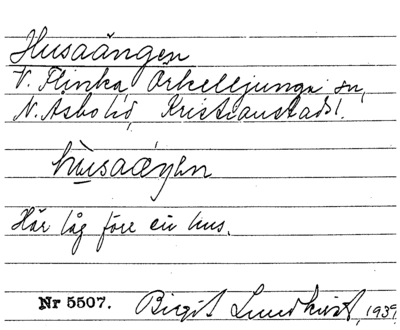 Husaängen
V. Flinka, Örkelljunga sn,
N. Åsbo hd, Kristianstads l.
hùsaæŋen
Här låg förr ett hus.
Nr 5507. Birgit Lundkvist, 1939